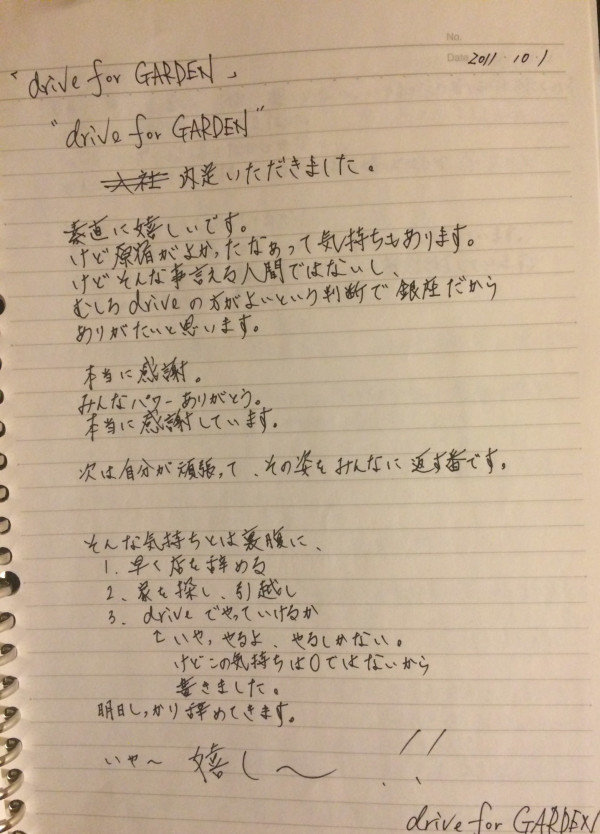 No.
Date 2011・10・1
「drive for GARDEN」
"drive for GARDEN"
入社 内定いただきました。
素直に嬉しいです。
けど原宿がよかったなあって気持ちもあります。
けどそんな事言える人間ではないし、
むしろdriveの方がよいという判断で銀座だから
ありがたいと思います。
本当に感謝。
みんなパワーありがとう。
本当に感謝しています。
次は自分が頑張って、その姿をみんなに返す番です。
そんな気持ちとは裏腹に、
1、早く店を辞める
2、家を探し、引越し
3、driveでやっていけるか
↑いや、やるよ、やるしかない。
けどこの気持ちは0ではないから
書きました。
明日しっかり辞めてきます。
いや〜 嬉し〜!!
drive for GARDEN